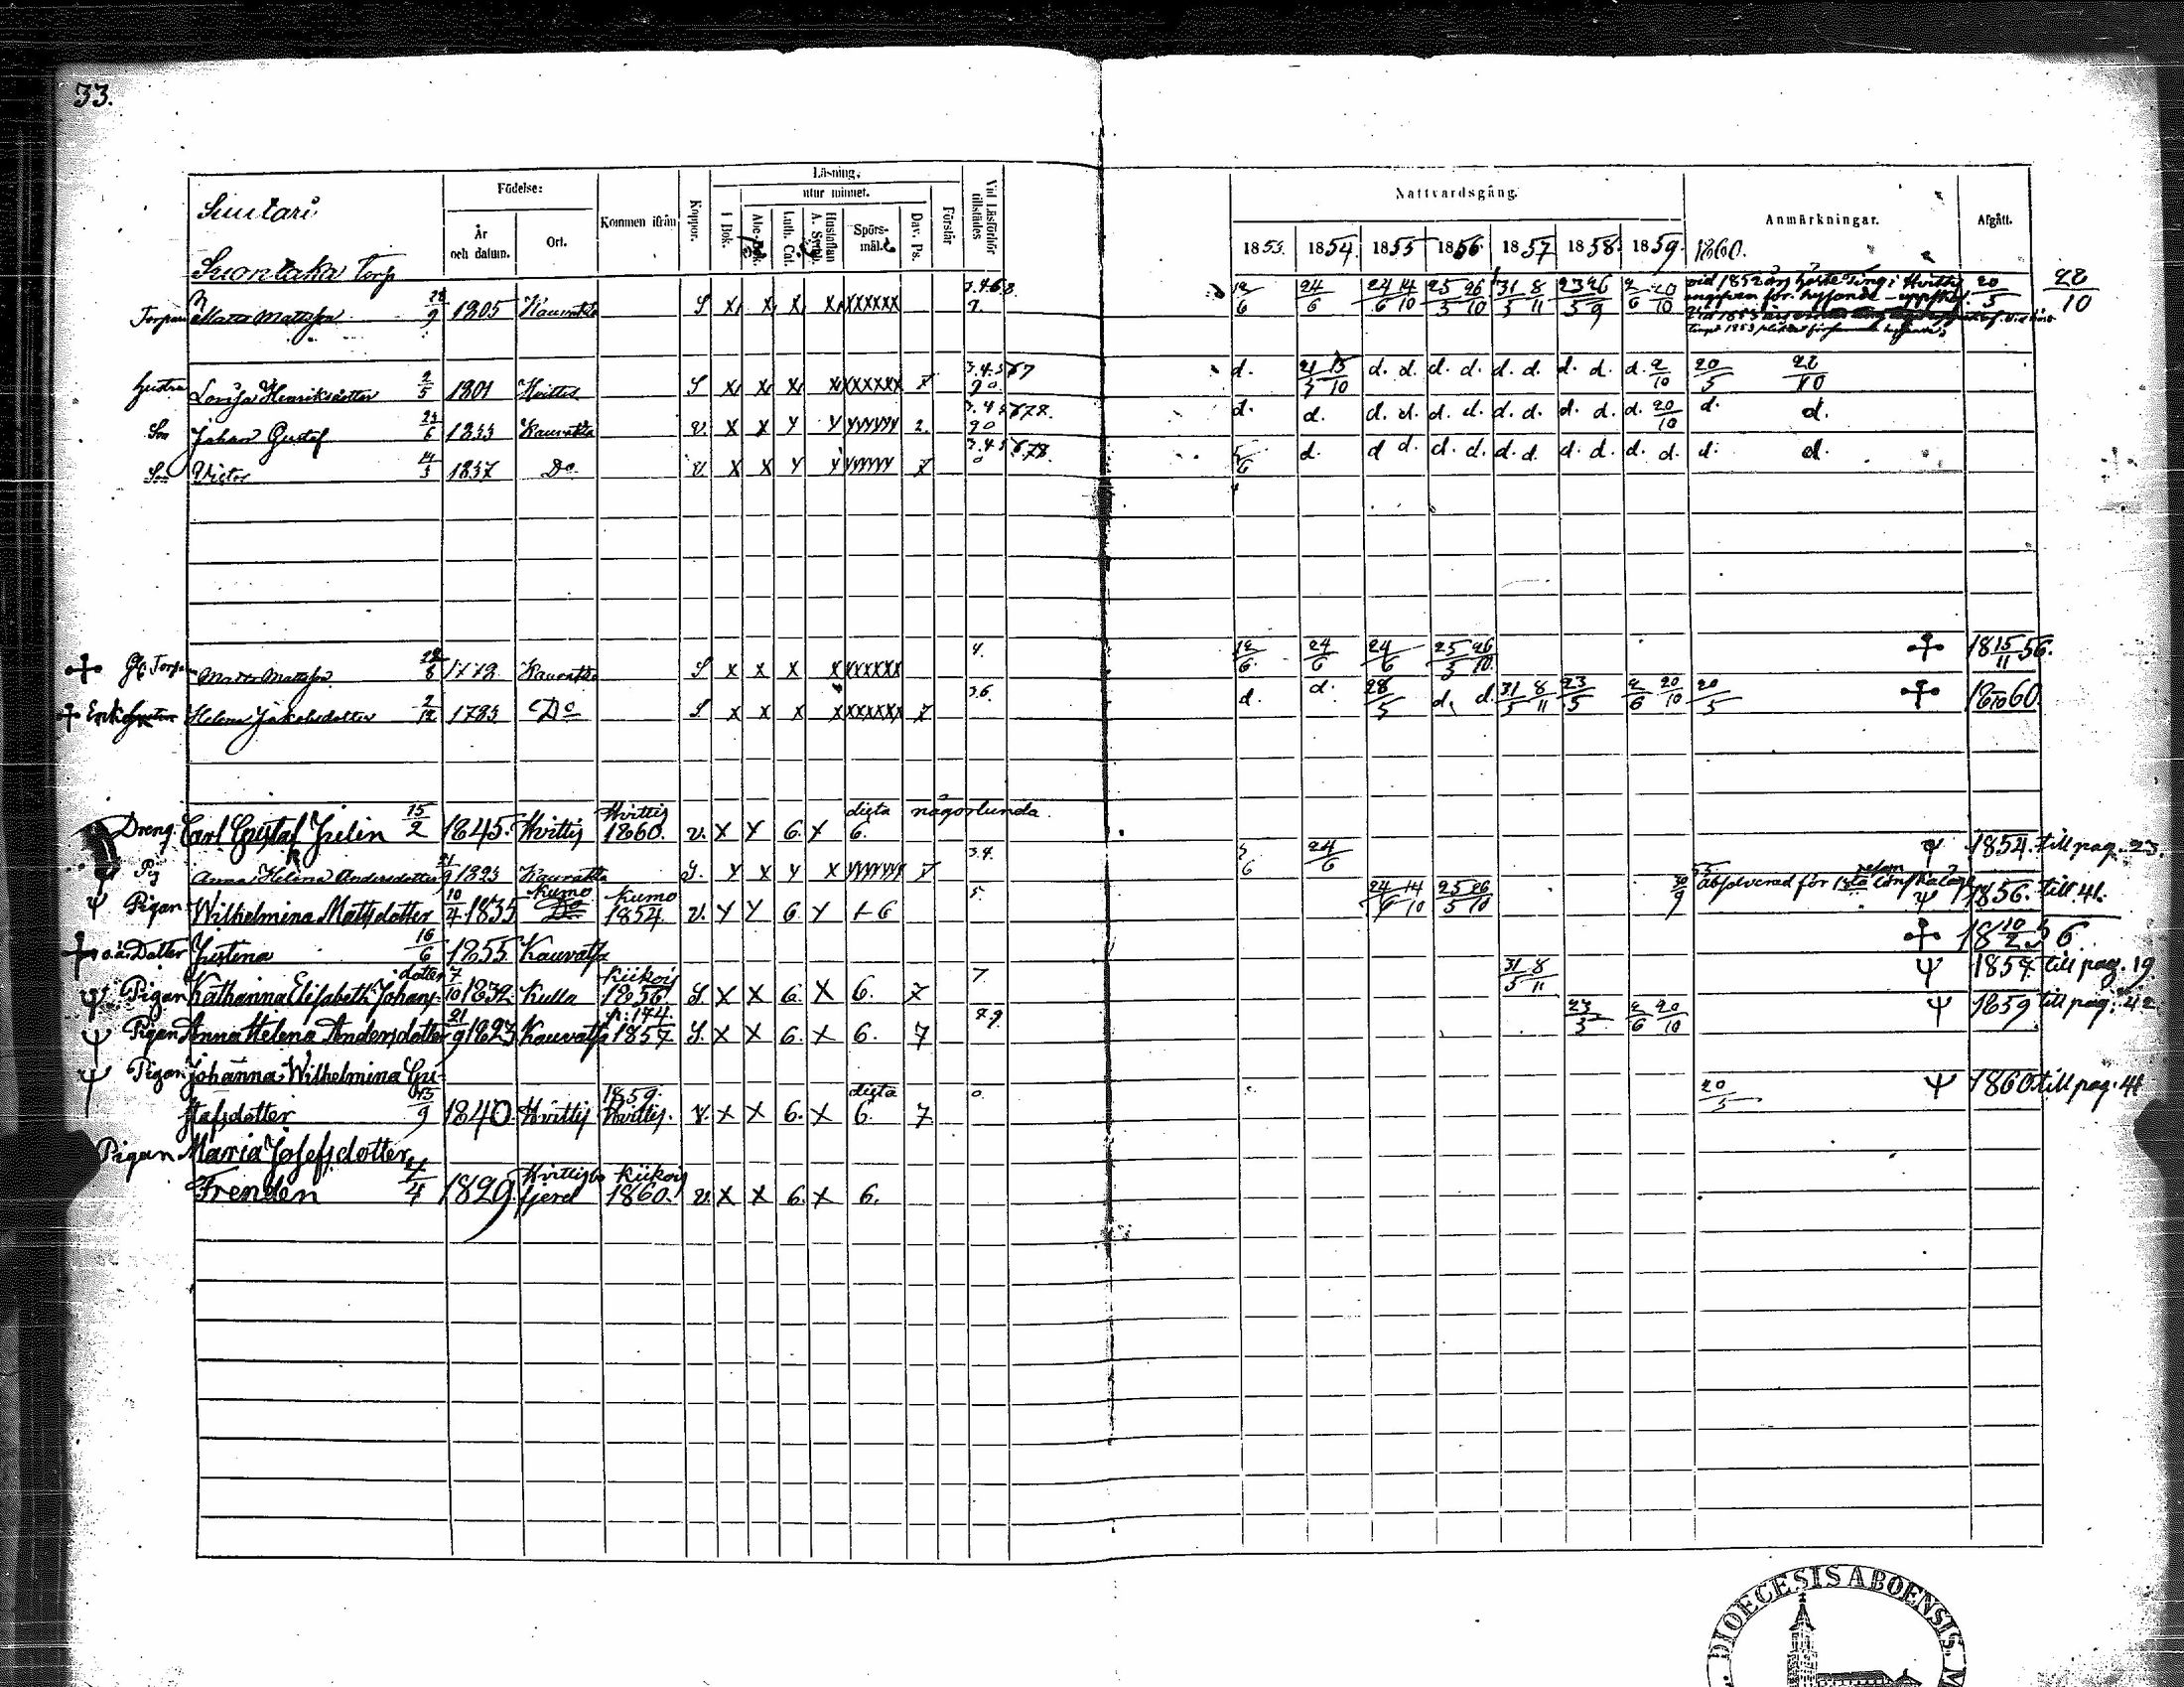 33.
Suutari
Suontaka Torp
Födelse:
År och datum.
Ort.
Kommen ifrån
Koppor.
Läsning,
utur minnet.
I Bok.
Abc-Bok.
Luth. Cat.
Hustaflan A. Symb.
Spörsmål.
Dav. Ps.
Förstår
Vid Läsförhör tillstädes
Nattvardsgång.
1853. 1854. 1855 1856 1857 1858. 1859. 1860.
Anmärkningar.
Afgått.
Torpare Matts Mattsson 28/9 1805 Kauvatsa S X X X X XXXXXX 12/6 24/6 24/6 14/10 25/5 26/10 31/5 8/11 23/5 26/9 2/6 20/10 20/5 22/10
vid 1852 års höste ting i Hvittis
Hustru Lovisa Henriksdotter 2/5 1801 Hvittis S X X X X XXXXXX 7 d. 21/5 15/10 d. d. d. d. d. d. d. d. d. 2/10 20/5 22/10
Son Johan Gustaf 23/6 1833 Kauvatsa v. X X Y Y YYYYYY 2. d. d. d. d. d. d. d. d. d. d. d. 20/10 d. d.
Son Victor 14/3 1837 Do v X X Y Y YYYYY 7 5/6 d. d d d. d. d. d. d. d. d. d. d. d.
Gl. Torpare Matts Mattsson 1772 Kauvatsa S X X X X XXXXXX 4. 12/6 24/6 24/6 25/5 26/10 18 15/11 56.
Enka Helena Jakobsdotter 2/12 1783 Do S X X X X XXXXXX 7 3.6. d. d. 28/5 d. d. 31/5 8/11 23/5 2/6 20/10 20/5
Dreng. Carl Gustaf Julin 15/2 1845. Hvittis Hvittis 1860. v. X Y 6. X digta 6. någorlunda
Pig Anna Helena Andersdotter 21/9 1823 Kauvatsa S. Y X Y X YYYYYY 7 3.4. 5/6 24/6 ψ 1854. till pag. 23.
ψ Pigan Wilhelmina Mattsdotter 10/4 1835 Kumo Kumo 1854 v. Y Y 6 Y 6 5. 24/6 14/10 25/5 26/10 30/9 absolverad för 1sta resan lönskaläge ψ 1856. till 41.
o.ä. Dotter Justena 16/6 1855. Kauvatsa 18 10/2 56.
ψ Pigan Katharina Elisabeth Johans-dotter 7/10 1832 Kulla Kiikois 1856. S. X X 6. X 6. 7 7. 31/5 8/11 ψ 1857. till pag. 19.
ψ Pigan Anna Helena Andersdotter 21/9 1823 Kauvatsa p. 174. 1857 S. X X 6. X 6. 7 8.9. 23/5 2/6 20/10 ψ 1859 till pag. 42
ψ Pigan Johanna Wilhelmina Gu-
stafsdotter 13/9 1840. Hvittis 1859. Hvittis. v. X X 6. X digta 6. 7 0. 20/5 ψ 1860 till pag. 41
Pigan Maria Josefsdotter
Frenden 4/4 1829. Hvittisbofjerd Kiikois 1860. v. X X 6. X 6.
DIOECESIS ABOENSIS.